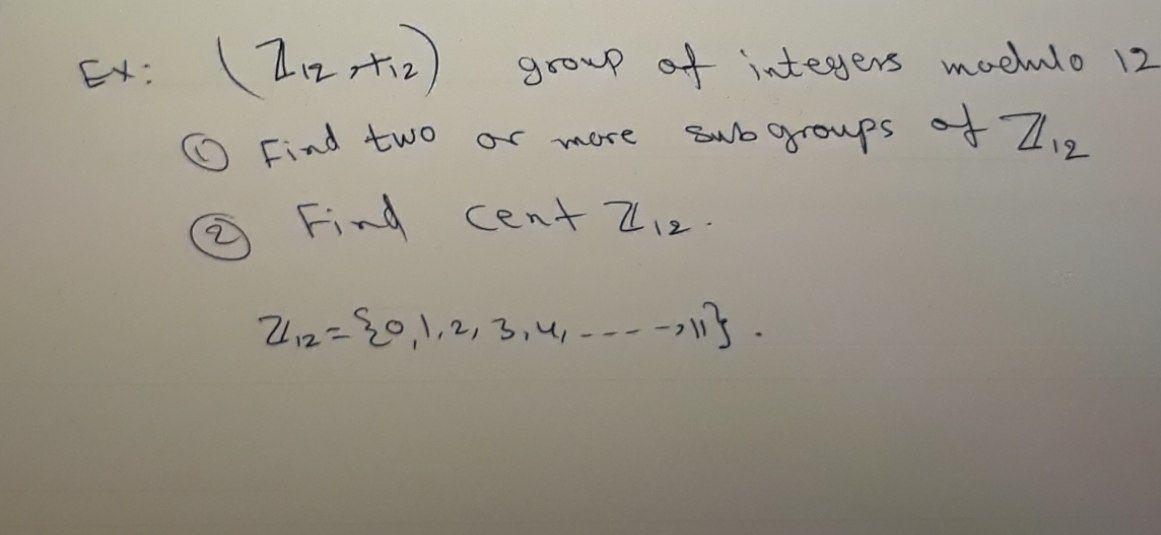 Ex: (ℤ12, +12) group of integers modulo 12
① Find two or more subgroups of ℤ12
② Find cent ℤ12.
ℤ12 = {0, 1, 2, 3, 4, ----, 11}.